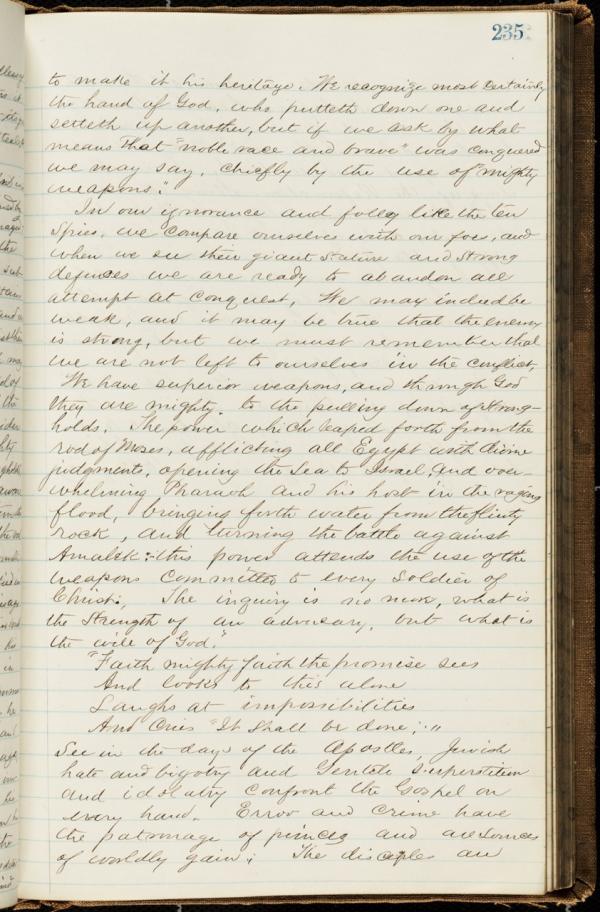 235
to make it his heritage. We recognize most certainly
the hand of God, who putteth down one and
setteth up another, but if we ask by what
means that "noble race and brave" was conquered
we may say, chiefly by the use of "mighty
weapons."
In our ignorance and folly like the ten
Spies, we compare ourselves with our foes, and
when we see their giant stature and strong
defences we are ready to abandon all
attempt at conquest, We may indeed be
weak, and it may be true that the enemy
is strong, but we must remember that
we are not left to ourselves in the conflict,
We have superior weapons, and through God
they are mighty, to the pulling down of strong-
holds. The power which leaped forth from the
rod of Moses, afflicting all Egypt with divine
judgments, opening the Sea to Israel, and over-
whelming Pharaoh and his host in the raging
flood, bringing forth water from the flinty
rock, and turning the battle against
Amalek:- this power attends the use of the
weapons committed to every Soldier of
Christ., The inquiry is no more, what is
the strength of an advocary, but what is
the wile of God."
"Faith mighty faith the promise sees
And looks to this alone
Laughs at impossibilities
And Cries "It shall be done;"
See in the days of the Apostles, Jewish
hate and bigotry and Gentile Superstition
and idolatry confront the Gospel on
every hand. Error and crime have
the patronage of princes and are sources
of worldly gain; The disciples are